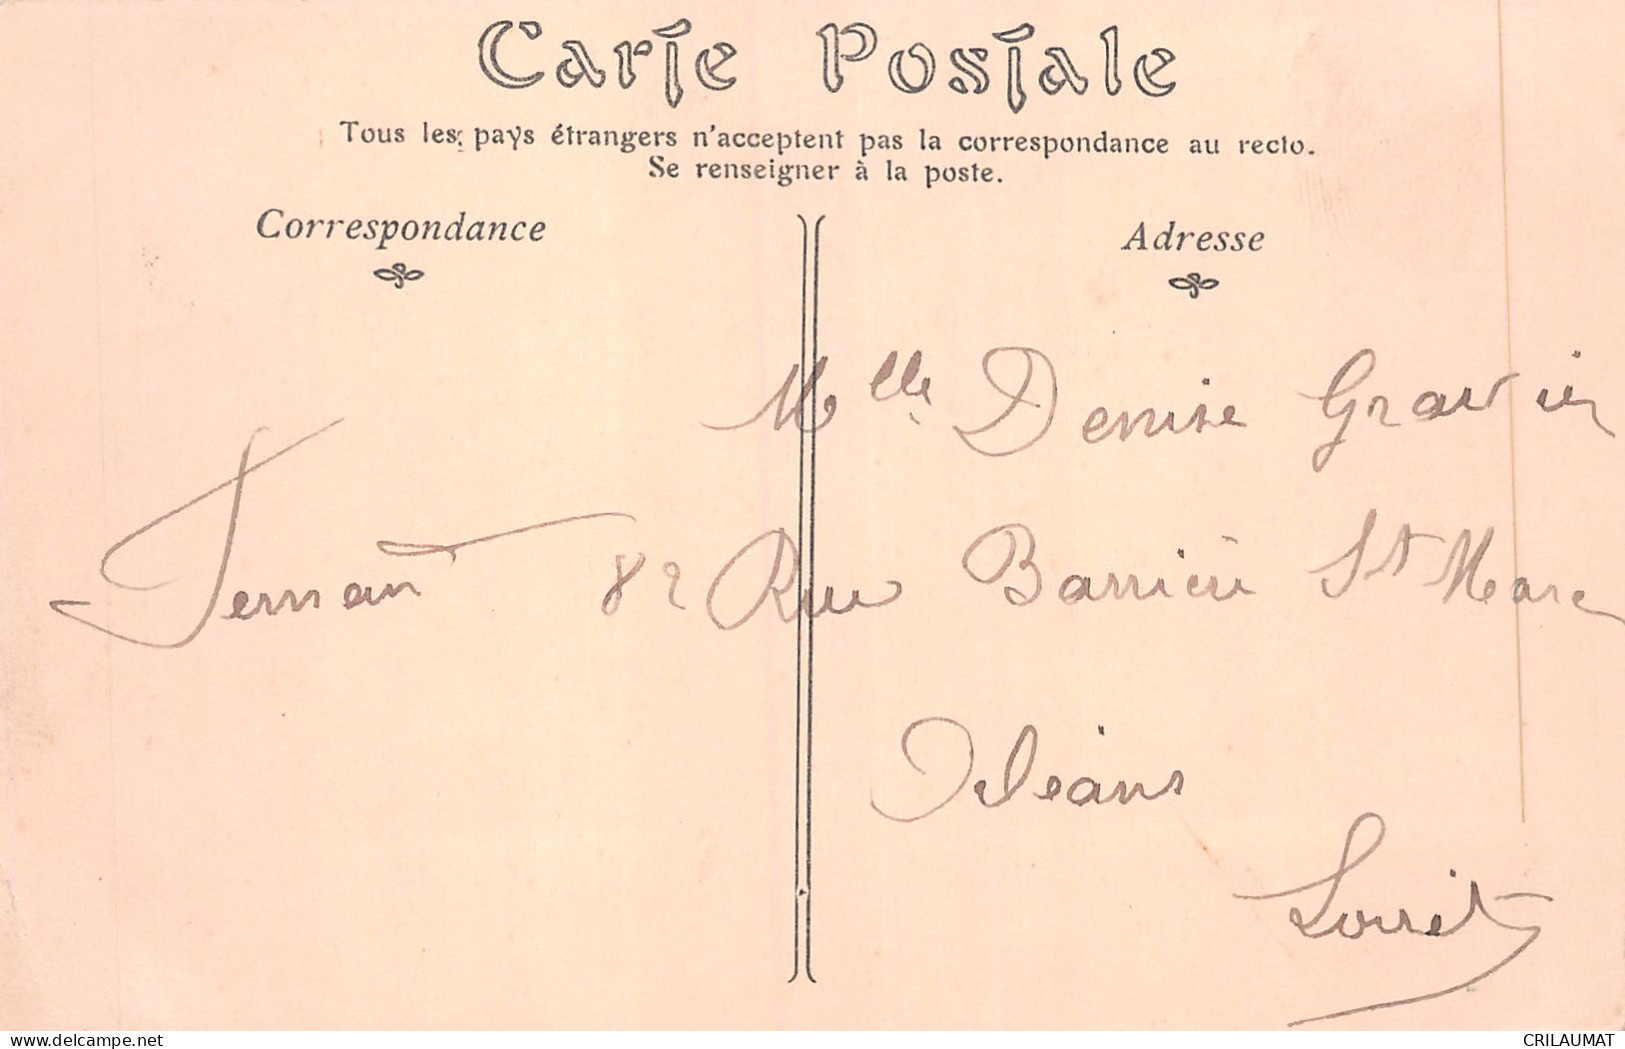 Carte Postale
Tous les pays étrangers n'acceptent pas la correspondance au recto.
Se renseigner à la poste.
Correspondance
Adresse
Mlle Denise Gravier
Fernand
82 Rue Barrière St Marc
Orléans
Loiret
delcampe.net
CRILAUMAT